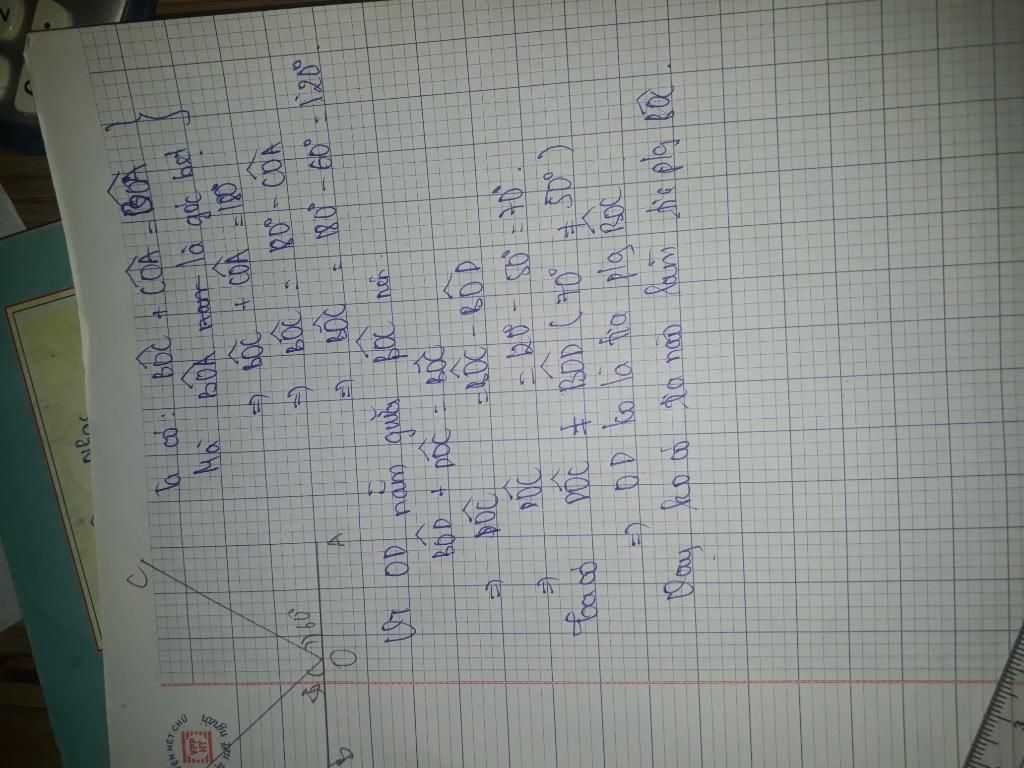 Ta có: BOC + COA = BOA }
Mà BOA là góc bẹt
=) BOC + COA = 180°
=) BOC = 180° - COA
=) BOC = 180° - 60° = 120°
C
60°
O
A
B
Vì OD nằm giữa BOC nên.
BOD + DOC = BOC
=) DOC = BOC - BOD
=) DOC = 120 - 50° = 70°.
Ta có DOC ≠ BOD (70° ≠ 50°)
=) OD ko là tia p/g BOC
Vậy ko có tia nào làm tia p/g BOC.